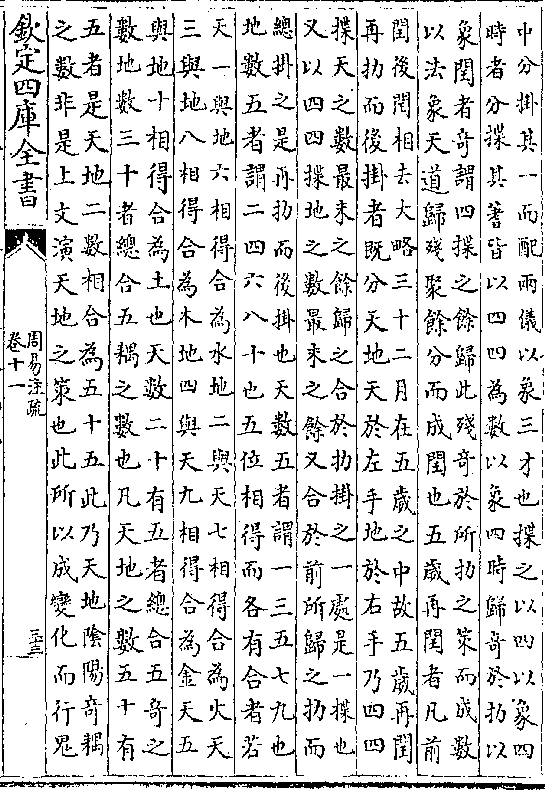 中分掛其一而配兩儀以象三才也揲之以四以象四
時者分揲其蓍皆以四四為數以象四時歸奇於扐以
象閏者奇謂四揲之餘歸此殘奇於所扐之策而成數
以法象天道歸殘聚餘分而成閏也五歲再閏者凡前
閏後閏相去大略三十二月在五歲之中故五歲再閏
再扐而後掛者既分天地天於左手地於右手乃四四
揲天之數最末之餘歸之合於扐掛之一處是一揲也
又以四四揲地之數最末之餘又合於前所歸之扐而
總掛之是再扐而後掛也天數五者謂一三五七九也
地數五者謂二四六八十也五位相得而各有合者若
天一與地六相得合為水地二與天七相得合為火天
三與地八相得合為木地四與天九相得合為金天五
與地十相得合為土也天數二十有五者總合五奇之
數地數三十者總合五耦之數也凡天地之數五十有
五者是天地二數相合為五十五此乃天地陰陽奇耦
之數非是上文演天地之策也此所以成變化而行鬼
欽定四庫全書
周易注疏
卷十一